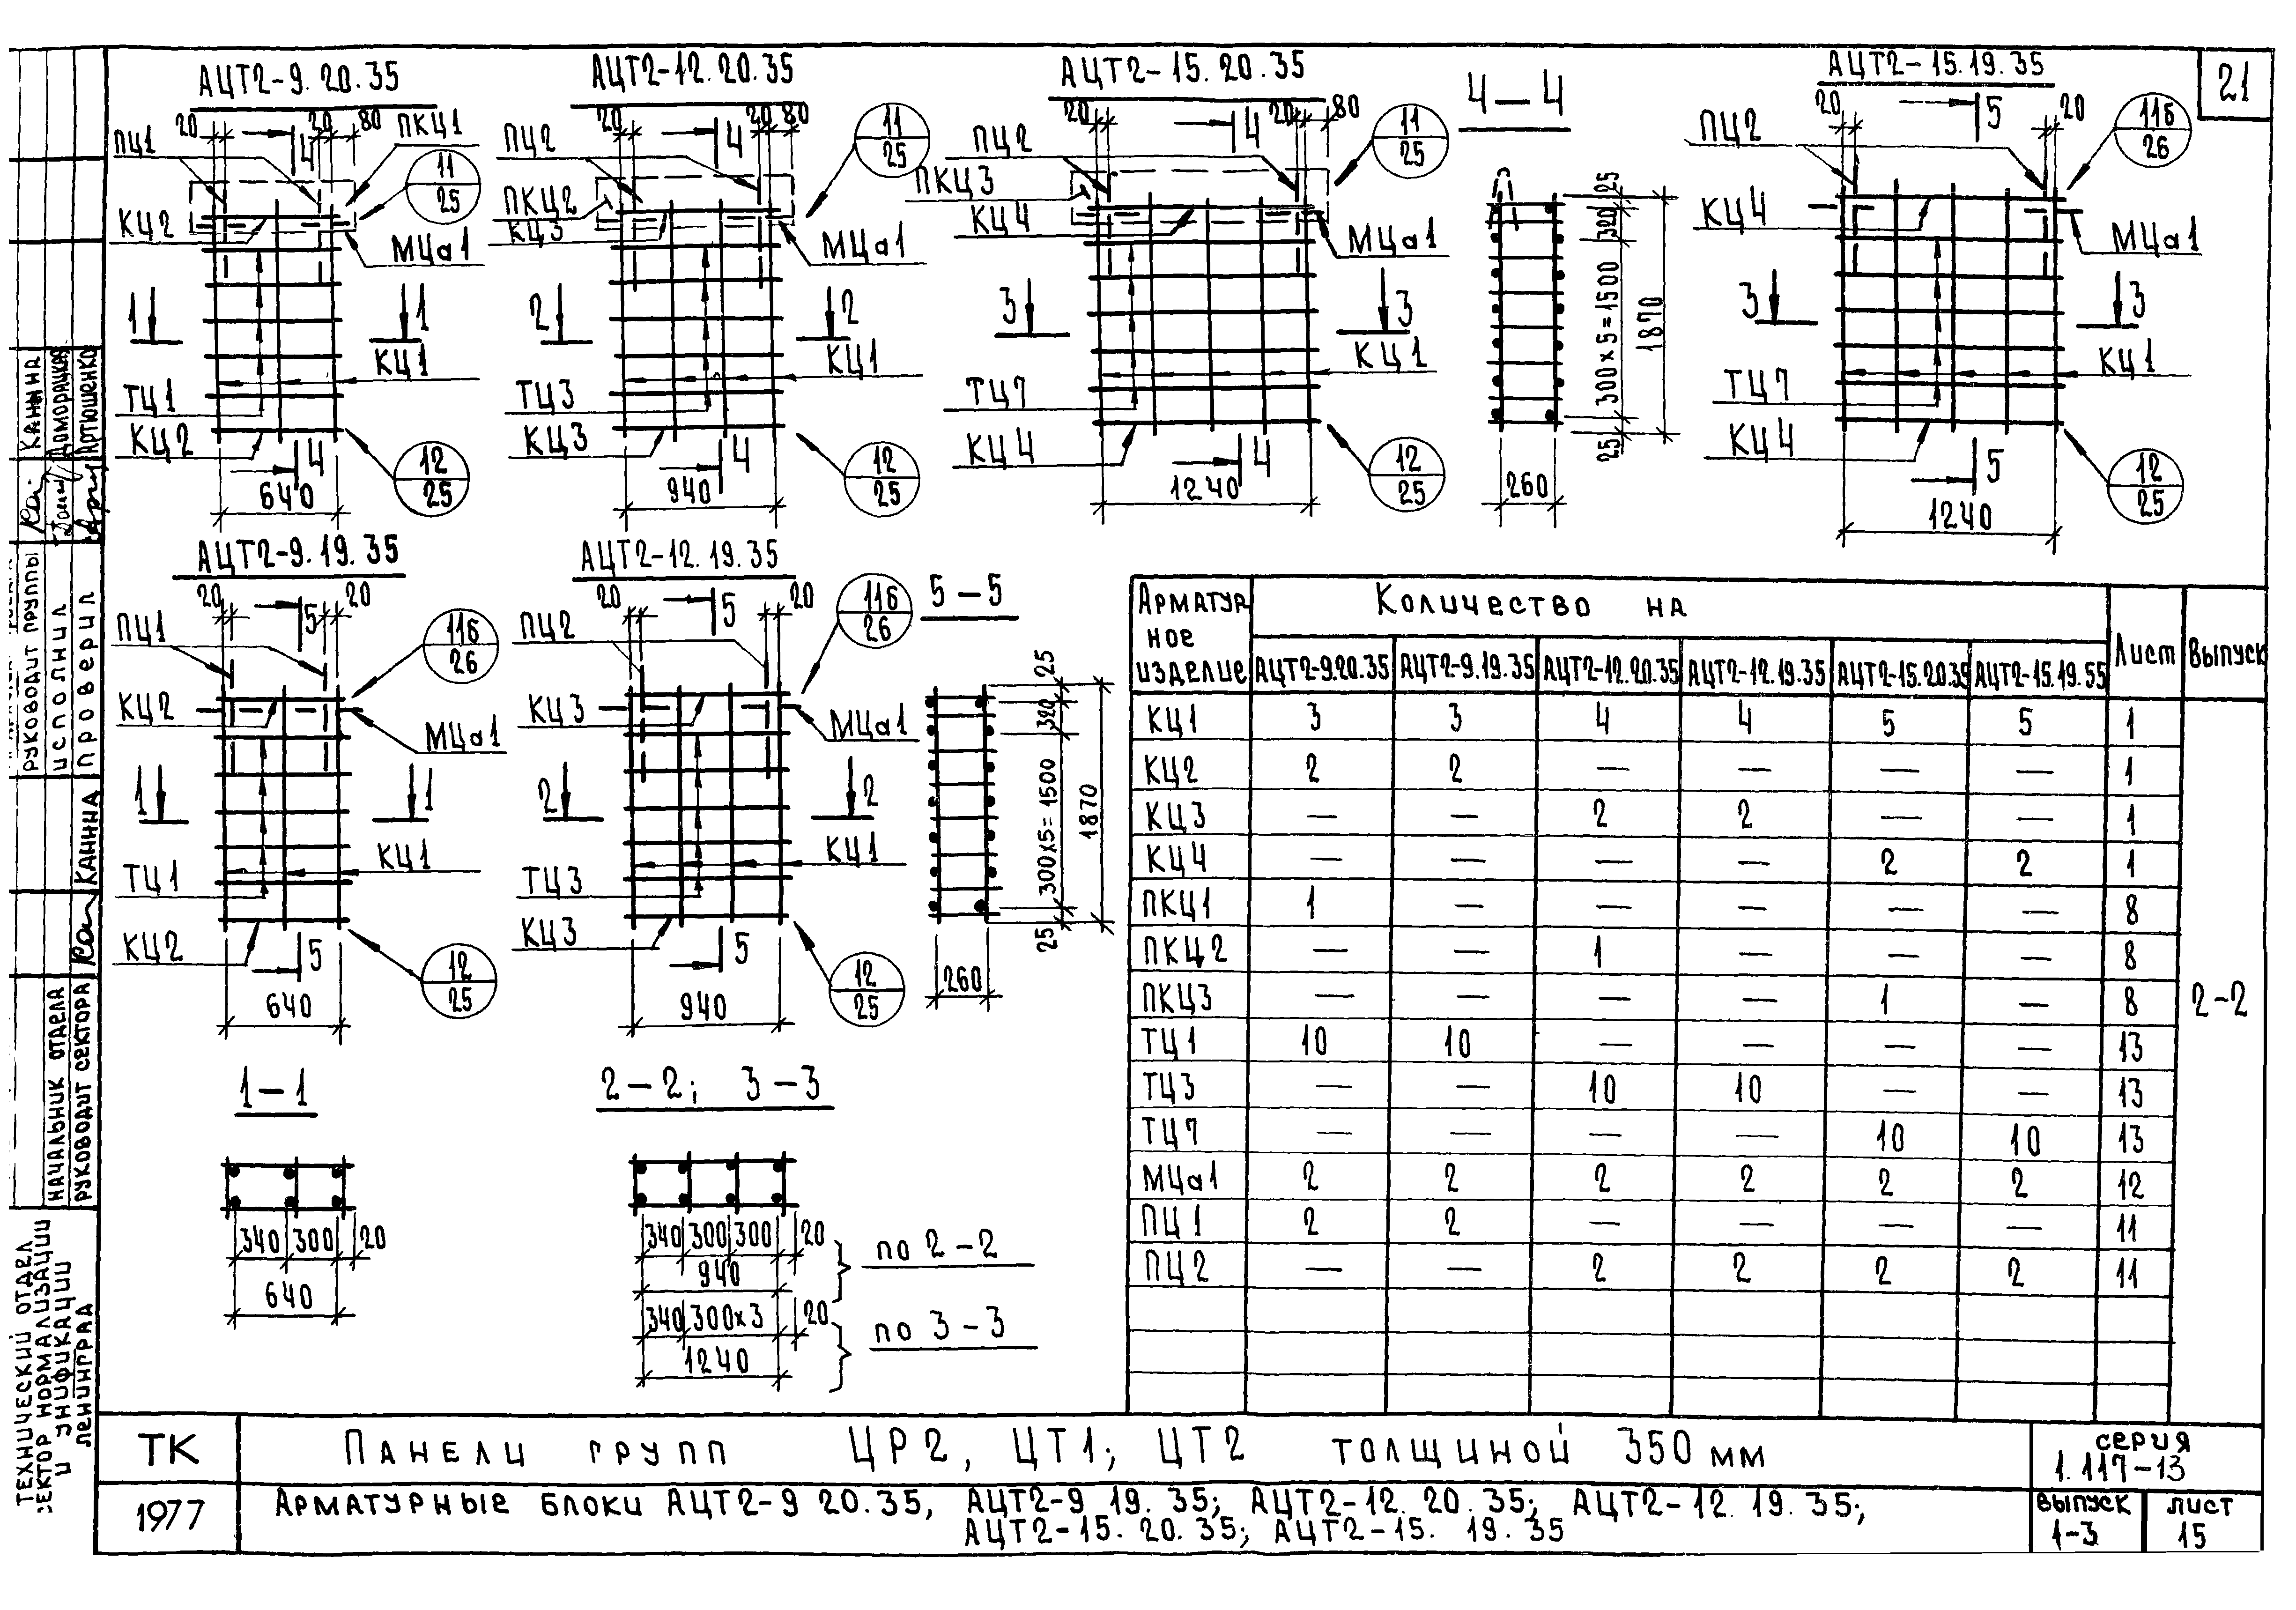 21
АЦТ2-9.20.35
20
20
80
ПКЦ1
ПЦ1
4
11
25
КЦ2
МЦа1
1
1
КЦ1
ТЦ1
КЦ2
4
12
25
640
АЦТ2-12.20.35
20
20
80
11
25
ПЦ2
4
ПКЦ2
КЦ3
МЦа1
2
2
КЦ1
ТЦ3
КЦ3
4
12
25
940
АЦТ2-15.20.35
20
20
80
11
25
ПЦ2
4
ПКЦ3
КЦ4
МЦа1
3
3
КЦ1
ТЦ7
КЦ4
4
12
25
1240
4-4
25
320
300х5=1500
1870
25
260
АЦТ2-15.19.35
20
20
5
11б
26
ПЦ2
КЦ4
МЦа1
3
3
КЦ1
ТЦ7
КЦ4
5
12
25
1240
АЦТ2-9.19.35
20
20
5
11б
26
ПЦ1
КЦ2
МЦа1
1
1
КЦ1
ТЦ1
КЦ2
5
12
25
640
АЦТ2-12.19.35
20
20
5
11б
26
ПЦ2
КЦ3
МЦа1
2
2
КЦ1
ТЦ3
КЦ3
5
12
25
940
5-5
25
320
300х5=1500
1870
25
260
1-1
340 300 20
640
2-2; 3-3
340 300 300 20
940
по 2-2
340 300х3 20
1240
по 3-3
Арматур
ное
изделие
Количество на
Лист
Выпуск
АЦТ2-9.20.35 АЦТ2-9.19.35 АЦТ2-12.20.35 АЦТ2-12.19.35 АЦТ2-15.20.35 АЦТ2-15.19.55
КЦ1 3 3 4 4 5 5 1
КЦ2 2 2 — — — — 1
КЦ3 — — 2 2 — — 1
КЦ4 — — — — 2 2 1
ПКЦ1 1 — — — — — 8
ПКЦ2 — — 1 — — — 8
ПКЦ3 — — — — 1 — 8
2-2
ТЦ1 10 10 — — — — 13
ТЦ3 — — 10 10 — — 13
ТЦ7 — — — — 10 10 13
МЦа1 2 2 2 2 2 2 12
ПЦ1 2 2 — — — — 11
ПЦ2 — — 2 2 2 2 11
Канина
Доморацкая
Артюшенко
руководит группы
исполнил
проверил
Канина
начальник отдела
руководит сектора
технический отдел
сектор нормализации
и унификации
Ленинград
ТК
Панели групп ЦР2, ЦТ1; ЦТ2 толщиной 350 мм
серия
1.117-13
1977
Арматурные блоки АЦТ2-9 20.35, АЦТ2-9 19.35; АЦТ2-12.20.35; АЦТ2-12.19.35;
АЦТ2-15.20.35; АЦТ2-15. 19.35
выпуск
1-3
лист
15